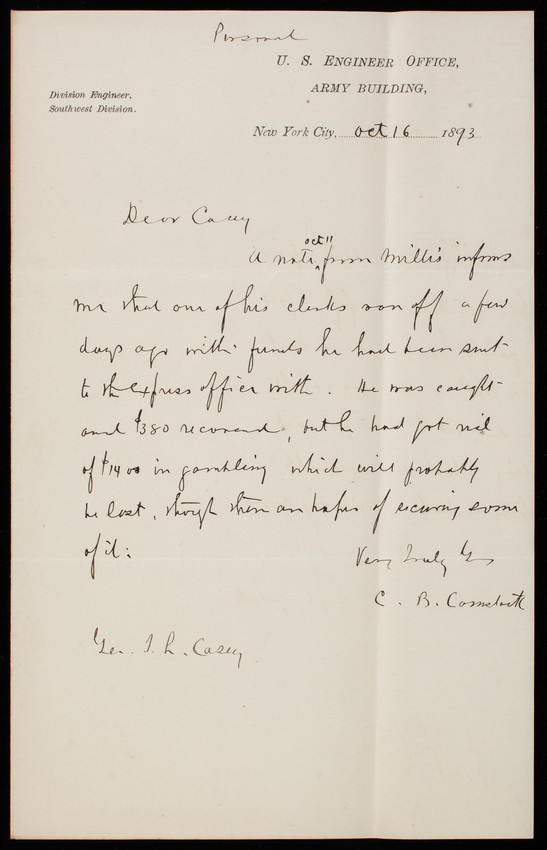 Personal
U. S. ENGINEER OFFICE,
ARMY BUILDING,
Division Engineer,
Southwest Division.
New York City, Oct 16 1893
Dear Casey
A note oct 11 from Millis informs
me that one of his clerks ran off a few
days ago with funds he had been sent
to the express office with. He was caught
and $380 recovered, but he had got rid
of $1400 in gambling which will probably
be lost, though there are hopes of securing some
of it.
Very Truly Yrs
C. B. Comstock
Gen. T. L. Casey